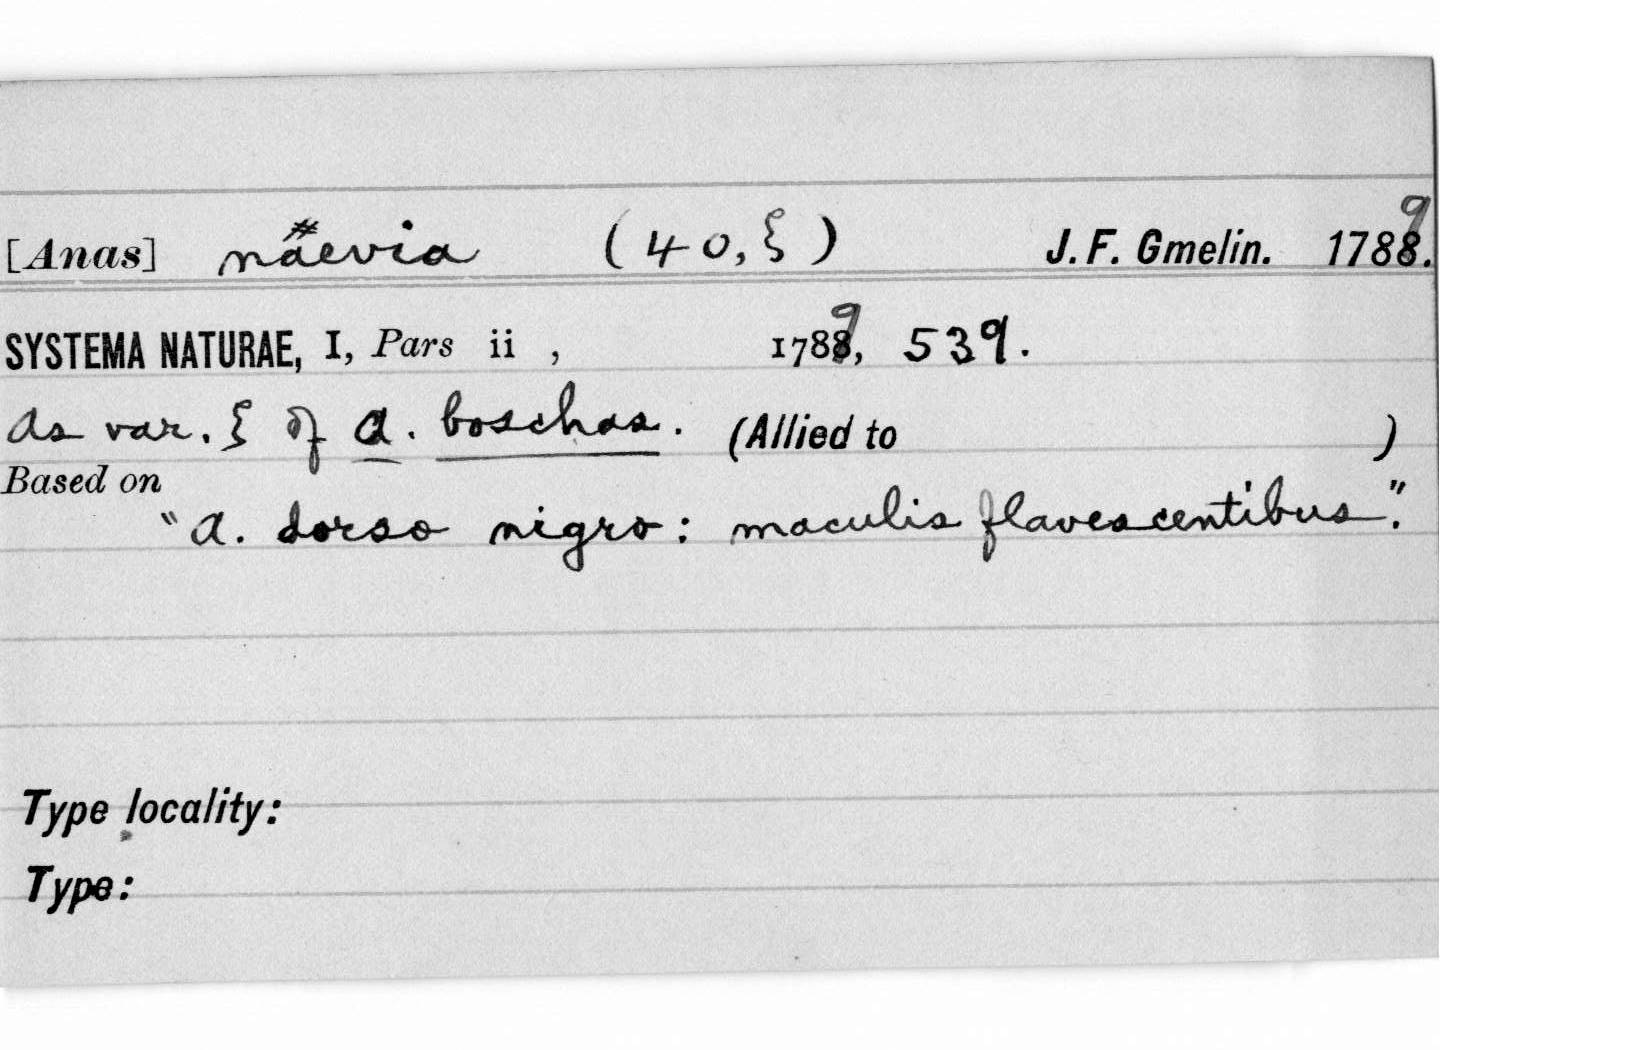 [Anas] naevia (40, ξ) J. F. Gmelin. 1789.
SYSTEMA NATURAE, I, Pars ii , 1789, 539.
As var. ξ of A. boschas. (Allied to )
Based on
"A. dorso nigro: maculis flavescentibus".
Type locality:
Type: